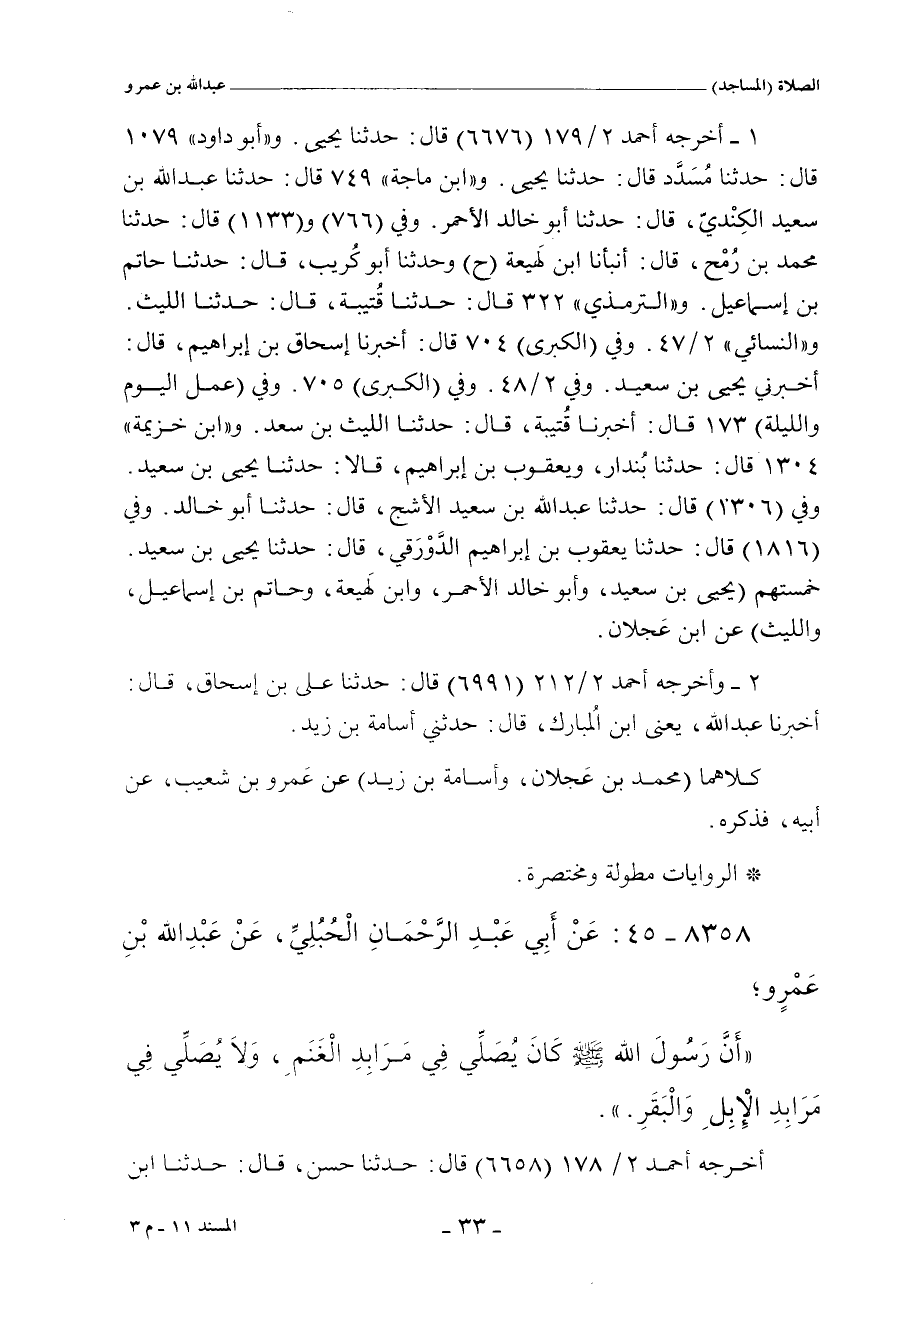 الصلاة (المساجد) عبدالله بن عمرو
١ ـ أخرجه أحمد ٢/ ١٧٩ (٦٦٧٦) قال: حدثنا يحيى. و«أبو داود» ١٠٧٩
قال: حدثنا مُسَدَّد قال: حدثنا يحيى. و«ابن ماجة» ٧٤٩ قال: حدثنا عبدالله بن
سعيد الكِنْديّ، قال: حدثنا أبو خالد الأحمر. وفي (٧٦٦) و(١١٣٣) قال: حدثنا
محمد بن رُمْح، قال: أنبأنا ابن لَهيعة (ح) وحدثنا أبو كُريب، قال: حدثنا حاتم
بن إسماعيل. و«الترمذي» ٣٢٢ قال: حدثنا قُتيبة، قال: حدثنا الليث.
و«النسائي» ٢/ ٤٧. وفي (الكبرى) ٧٠٤ قال: أخبرنا إسحاق بن إبراهيم، قال:
أخبرني يحيى بن سعيد. وفي ٢/ ٤٨. وفي (الكبرى) ٧٠٥. وفي (عمل اليوم
والليلة) ١٧٣ قال: أخبرنا قُتيبة، قال: حدثنا الليث بن سعد. و«ابن خزيمة»
١٣٠٤ قال: حدثنا بُندار، ويعقوب بن إبراهيم، قالا: حدثنا يحيى بن سعيد.
وفي (١٣٠٦) قال: حدثنا عبدالله بن سعيد الأشج، قال: حدثنا أبو خالد. وفي
(١٨١٦) قال: حدثنا يعقوب بن إبراهيم الدَّوْرَقي، قال: حدثنا يحيى بن سعيد.
خمستهم (يحيى بن سعيد، وأبو خالد الأحمر، وابن لَهيعة، وحاتم بن إسماعيل،
والليث) عن ابن عَجلان.
٢ ـ وأخرجه أحمد ٢/ ٢١٢ (٦٩٩١) قال: حدثنا علي بن إسحاق، قال:
أخبرنا عبدالله، يعنى ابن المُبارك، قال: حدثني أسامة بن زيد.
كلاهما (محمد بن عَجلان، وأسامة بن زيد) عن عَمرو بن شعيب، عن
أبيه، فذكره.
* الروايات مطولة ومختصرة.
٨٣٥٨ ـ ٤٥: عَنْ أَبِي عَبْدِ الرَّحْمَانِ الْحُبُلِيِّ، عَنْ عَبْدِالله بْنِ
عَمْرٍو؛
«أَنَّ رَسُولَ الله ﷺ كَانَ يُصَلِّي فِي مَرَابِدِ الْغَنَمِ، وَلاَ يُصَلِّي فِي
مَرَابِدِ الْإِبِلِ وَالْبَقَرِ.».
أخرجه أحمد ٢/ ١٧٨ (٦٦٥٨) قال: حدثنا حسن، قال: حدثنا ابن
ـ ٣٣ ـ المسند ١١ ـ م ٣